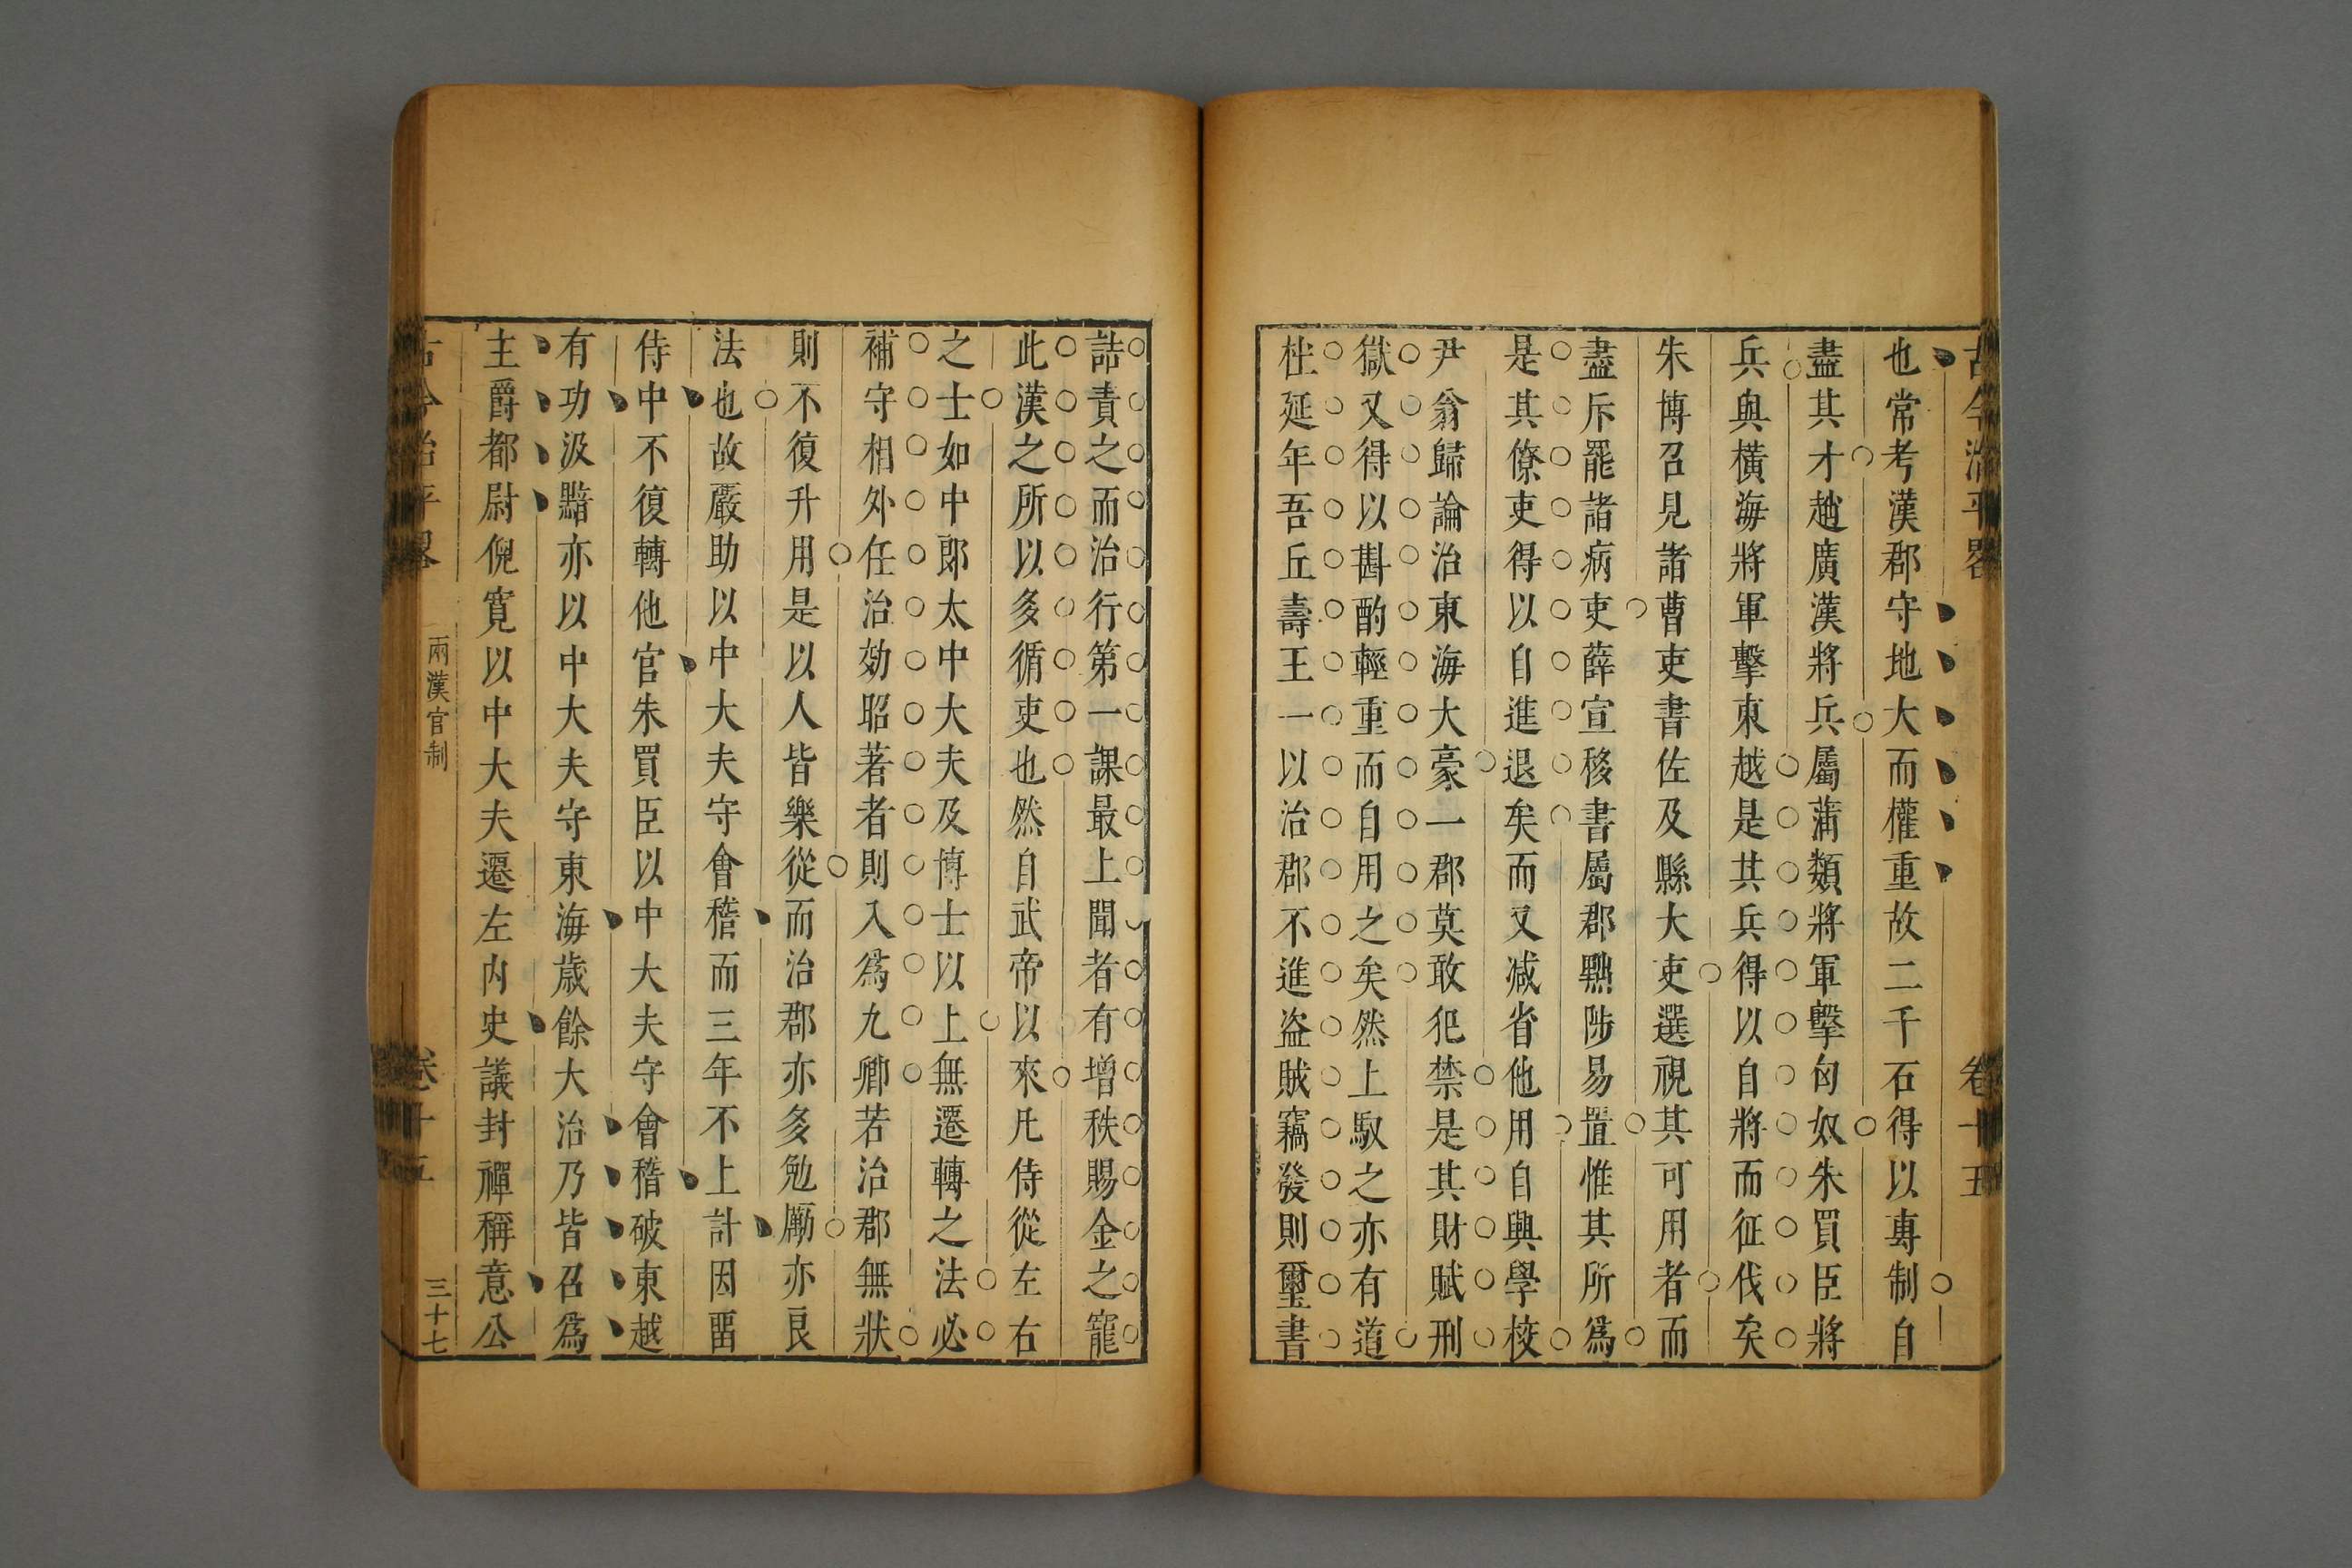 古今治平畧
卷十五
也常考漢郡守地大而權重故二千石得以專制自
盡其才趙廣漢將兵屬蒲類將軍擊匈奴朱買臣將
兵與橫海將軍擊東越是其兵得以自將而征伐矣
朱博召見諸曹吏書佐及縣大吏選視其可用者而
盡斥罷諸病吏薛宣移書屬郡黜陟易置惟其所爲
是其僚吏得以自進退矣而又減省他用自興學校
尹翁歸論治東海大豪一郡莫敢犯禁是其財賦刑
獄又得以斟酌輕重而自用之矣然上馭之亦有道
杜延年吾丘壽王一以治郡不進盜賊竊發則璽書
誥責之而治行第一課最上聞者有增秩賜金之寵
此漢之所以多循吏也然自武帝以來凡侍從左右
之士如中郎太中大夫及博士以上無遷轉之法必
補守相外任治効昭著者則入爲九卿若治郡無狀
則不復升用是以人皆樂從而治郡亦多勉勵亦良
法也故嚴助以中大夫守會稽而三年不上計因畱
侍中不復轉他官朱買臣以中大夫守會稽破東越
有功汲黯亦以中大夫守東海歲餘大治乃皆召爲
主爵都尉倪寬以中大夫遷左内史議封禪稱意公
古今治平畧
兩漢官制
卷十五
三十七